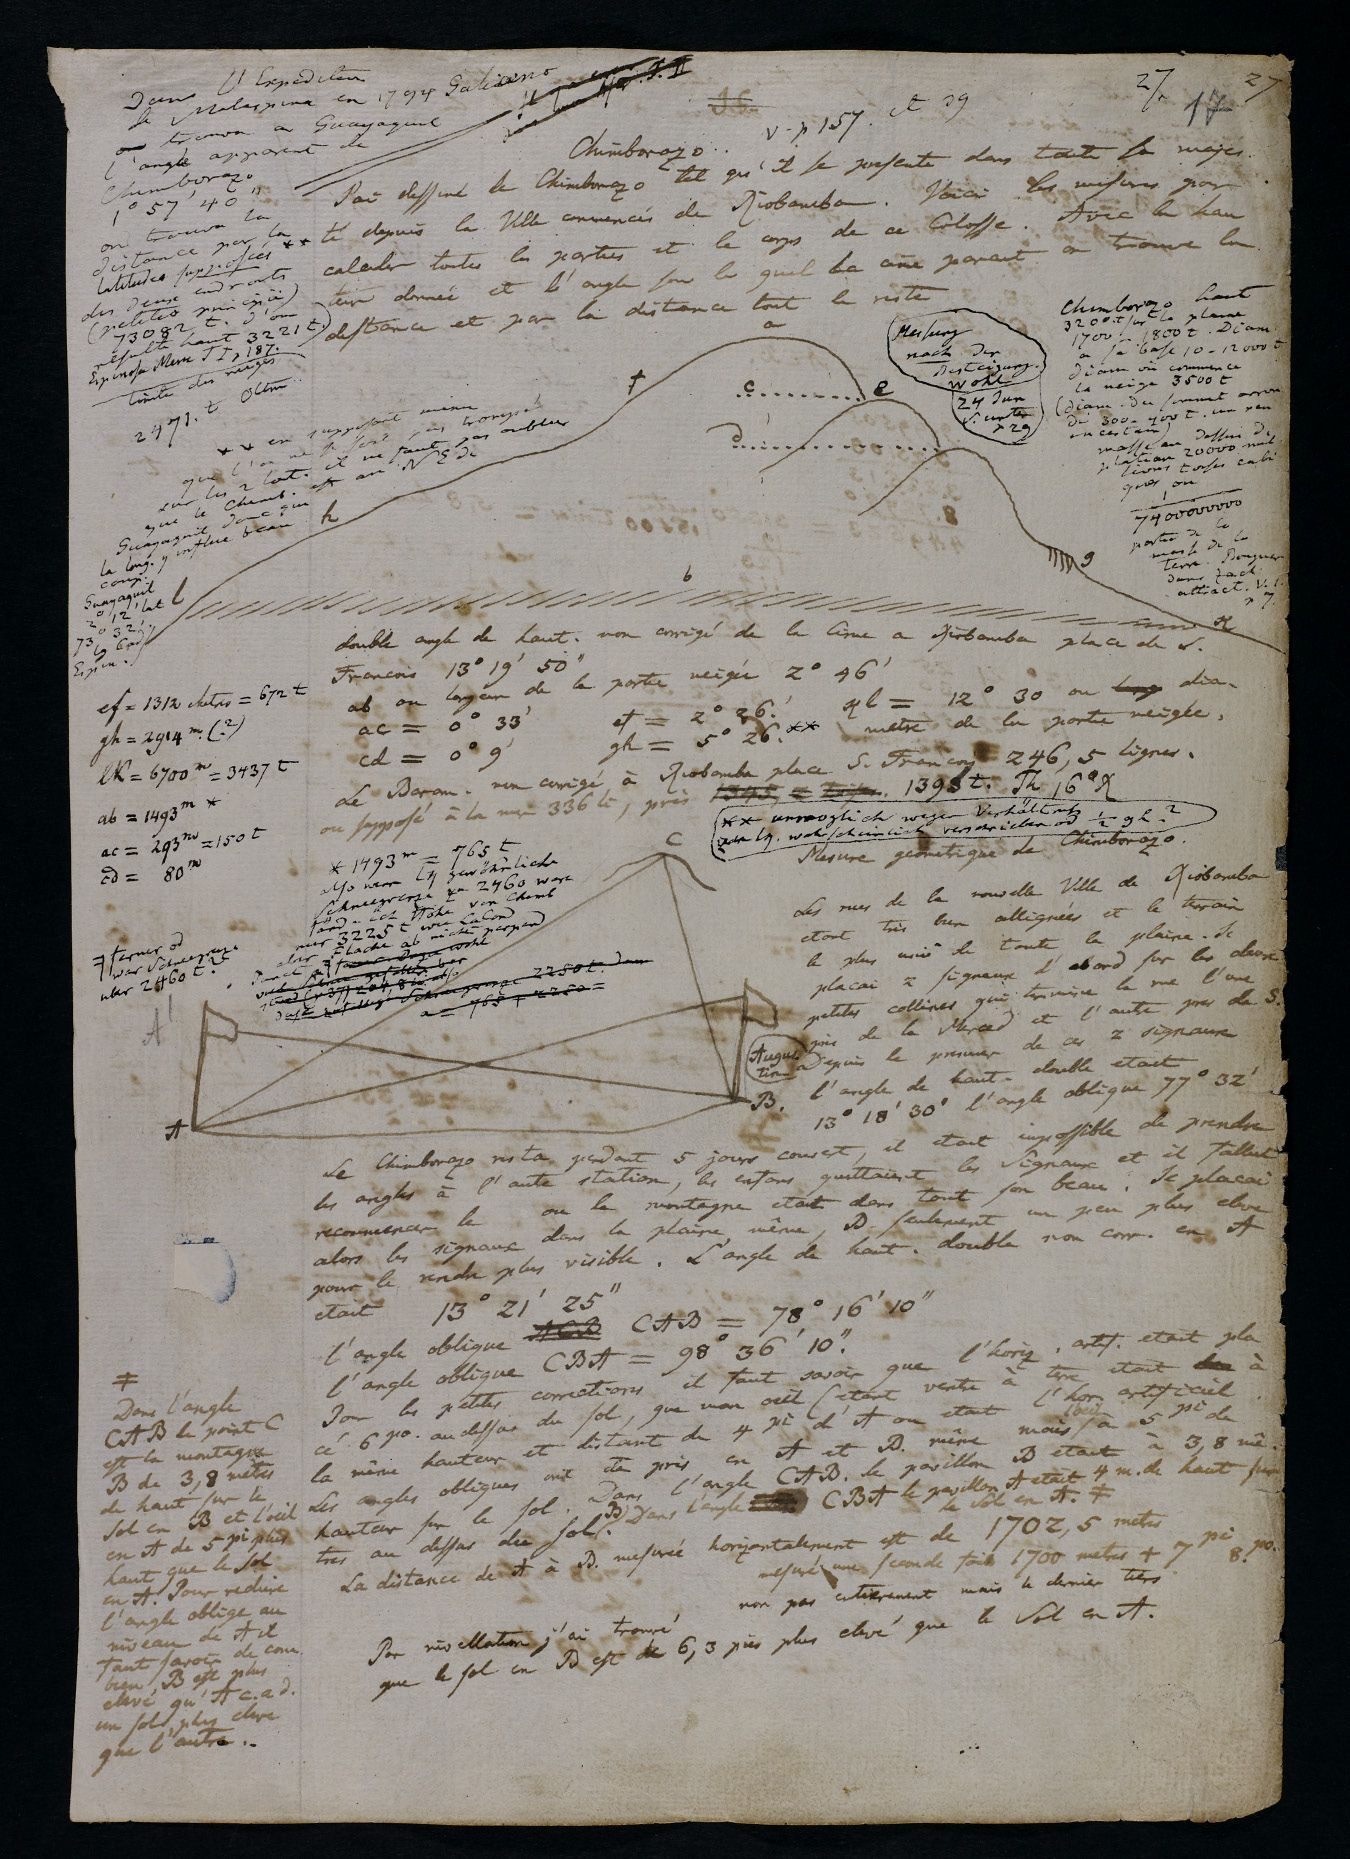 27 27
17
v. p 157. et 39
Dans l'Expedition
de Malaspina en 1794 Galiano
on trouva a Guayaquil
l'angle apparent de
Chimborazo
1° 57' 40"
on trouva la
distance par la
latitudes supposées **
des deux endroits
73082 t. d'où
résulte haut 3221 t.
Espinosa Mem T I p 187.
limite des neiges
2471. t Oltm.
** en supposant même
que l'on ne se soit pas trompé
sur les 2 lat. il ne faut pas oublier
que le Chimb. est au N E de
Guayaquil donc que
la long. y influe beau
coup.
Guayaquil
2° 12' lat
73° 32'
Espin.
Chimborazo..
J'ai dessiné le Chimborazo tel qu'il se presente dans toute sa majes-
té depuis la Ville commencée de Riobamba. Voici les mesures pour
calculer toutes les parties et le corps de ce Colosse. Avec la hau
teur donnée et l'angle sous le quel la cime parait on trouve la
distance et par la distance tout le reste
Messung
nach der
Besteigung
wohl
24 Jun
S. unten
p 29
Chimborazo haut
3200 t. sur la plaine
1700-1800 t. Diam
a sa base 10-12000 t
diam où commence
la neige 3500 t
(diam. du sommet
de 300-400 t. un peu
incertain)
masse au dessus du
plateau 20000 mil
lions toises cubi
ques ou
1
7400000000
partie de la
masse de la
terre. Bouguer
dans Zach
attract.
a
f
c
e
d
h
g
b
l
K
double angle de haut. non corrigé de la Cime a Riobamba place de S.
Francois 13° 19' 50"
ab ou largeur de la partie neigée 2° 46'
ac = 0° 33' ef = 2° 26.' Kl = 12° 30 ou dia-
cd = 0° 9' gh = 5° 26.' ** metre de la partie neigée.
Le Barom. non corrigé à Riobamba place S. Francois 246,5 lignes.
ou supposé à la mer 336 li, près 1395 t. Th 16° R
** unmöglich wegen Verhältniss
wahrscheinlich verschrieben od ½ gh ?
ef = 1312 metres = 672 t
gh = 2914 m. (?)
lK = 6700 m = 3437 t
ab = 1493 m *
ac = 293 m = 150 t
cd = 80 m
* 1493 m = 765 t
also wenn gewöhnliche
Schneegrenze zu 2460 wäre
fände ich Höhe von Chimb
nur 3225 t wie LaCond
aber Fläche ab nicht perpend
ferner od
war Schneegrenze
über 2460 t. ?
Mesure geometrique de Chimborazo.
Les rues de la nouvelle Ville de Riobamba
etant très bien allignées et le terrain
le plus uni de toute la plaine. Je
placai 2 signaux d'abord sur les deux
petites collines qui termine la rue l'une
près de la Merced et l'autre pres de S.
Augustin
Depuis le premier de ces 2 signaux
l'angle de haut. double etait
13° 18' 30" l'angle oblique 77° 32'
C
A'
A
B.
Le Chimborazo resta pendant 5 jours couvert, il etait impossible de prendre
les angles à l'autre station, les enfans quittaient les Signaux et il fallut
recommencer le ou la montagne etait dans tout son beau. Je placai
alors les signaux dans la plaine même, B seulement un peu plus elevé
pour le rendre plus visible. L'angle de haut. double non corr. en A
etait 13° 21' 25"
l'angle oblique CAB = 78° 16' 10"
l'angle oblique CBA = 98° 36' 10".
Pour les petites corrections il faut savoir que l'horiz. artif. etait pla
cé 6 po. au dessus du sol, que mon oeil (etant ventre à terre etait à
la même hauteur et distant de 4 pi d'A ou etait l'hor. artificiel.
Les angles obliques ont été pris en A et B. même mais l'oeil à 5 pi de
hauteur sur le sol. Dans l'angle CAB. le pavillon B etait à 3,8 mè-
tres au dessus du sol (B) Dans l'angle CBA le pavillon A etait 4 m. de haut sur
le Sol en A. ‡
La distance de A à B. mesurée horizontalement est de 1702,5 metres
mesuré une seconde fois 1700 metres + 7 pi 8. po.
non pas entierement mais le dernier tiers
Par nivellation j'ai trouvé
que le sol en B est de 6,3 piés plus elevé que le Sol en A.
‡
Dans l'angle
CAB le point C
est la montagne
B de 3,8 mètres
de haut sur le
Sol en B et l'oeil
en A de 5 pi plus
haut que le Sol
en A. Pour reduire
l'angle oblige au
niveau de A il
faut savoir de com
bien B est plus
elevé qu'A c.a d.
un sol plus elevé
que l'autre..